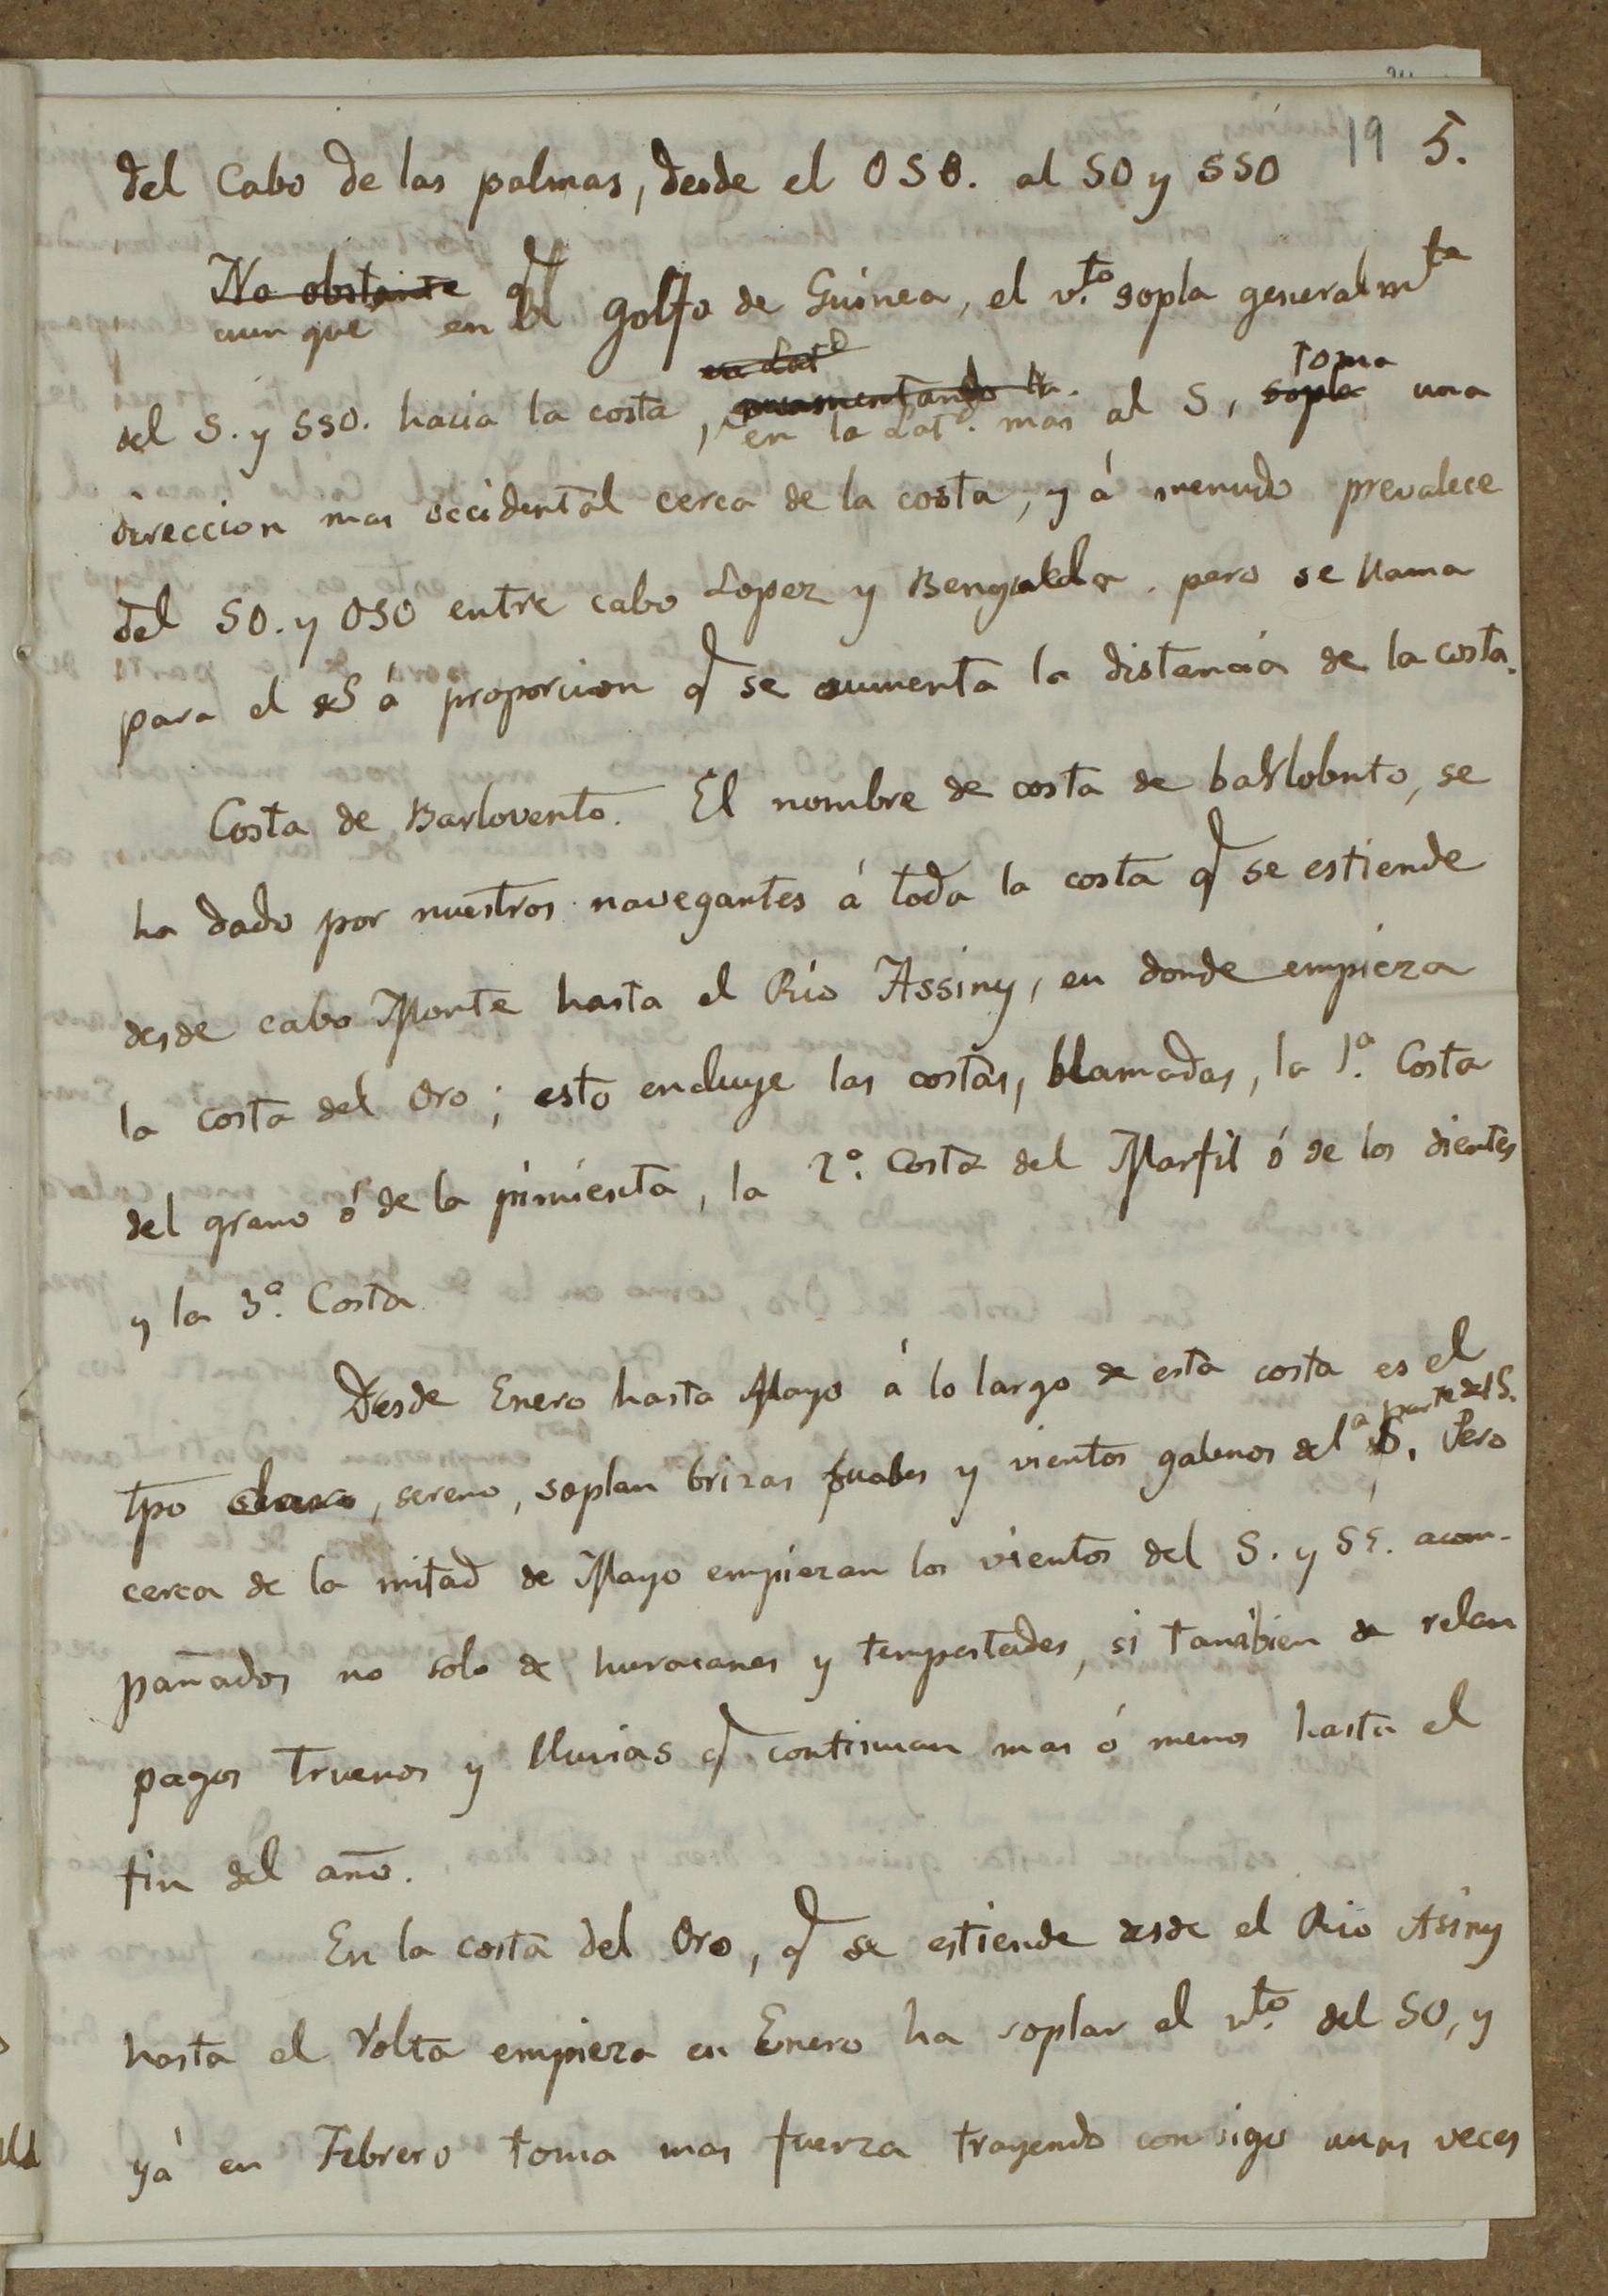 19 5.
del Cabo de las palmas, desde el OSO. al SO y SSO
No obstante
aun que en el golfo de Guinea, el v.to sopla generalmte
en Latd
toma
del S. y SSO. hacia la costa, en la Latd. mas al S, sopla una
direccion mas occidental cerca de la costa, y á menudo prevalece
del SO. y OSO entre cabo Lopez y Benguela. pero se llama
para el S á proporcion q se aumenta la distancia de la costa.
Costa de Barlovento. El nombre de costa de barlobnto, se
ha dado por nuestros navegantes á toda la costa q se estiende
desde cabo Monte hasta el Rio Assiny, en donde empieza
la costa del Oro; esto encluye las costas, llamadas, la 1.a Costa
del grano ó de la pimienta, la 2.o Costa del Marfil ó de los dientes
y la 3.a Costa
Desde Enero hasta Mayo á lo largo de esta costa es el
a parte del S.
tpo claro, sereno, soplan brizas suabes y vientos galenos del S. Pero
cerca de la mitad de Mayo empiezan los vientos del S. y SE. acom-
pañados no solo de huracanes y tempestades, si tambien de relan
pagos truenos y lluvias q continuan mas ó menos hasta el
fin del año.
En la costa del Oro, q se estiende desde el Rio Asiny
hasta el Volta empieza en Enero ha soplar el v.to del SO, y
yá en Febrero toma mas fuerza trayendo consigo unas veces